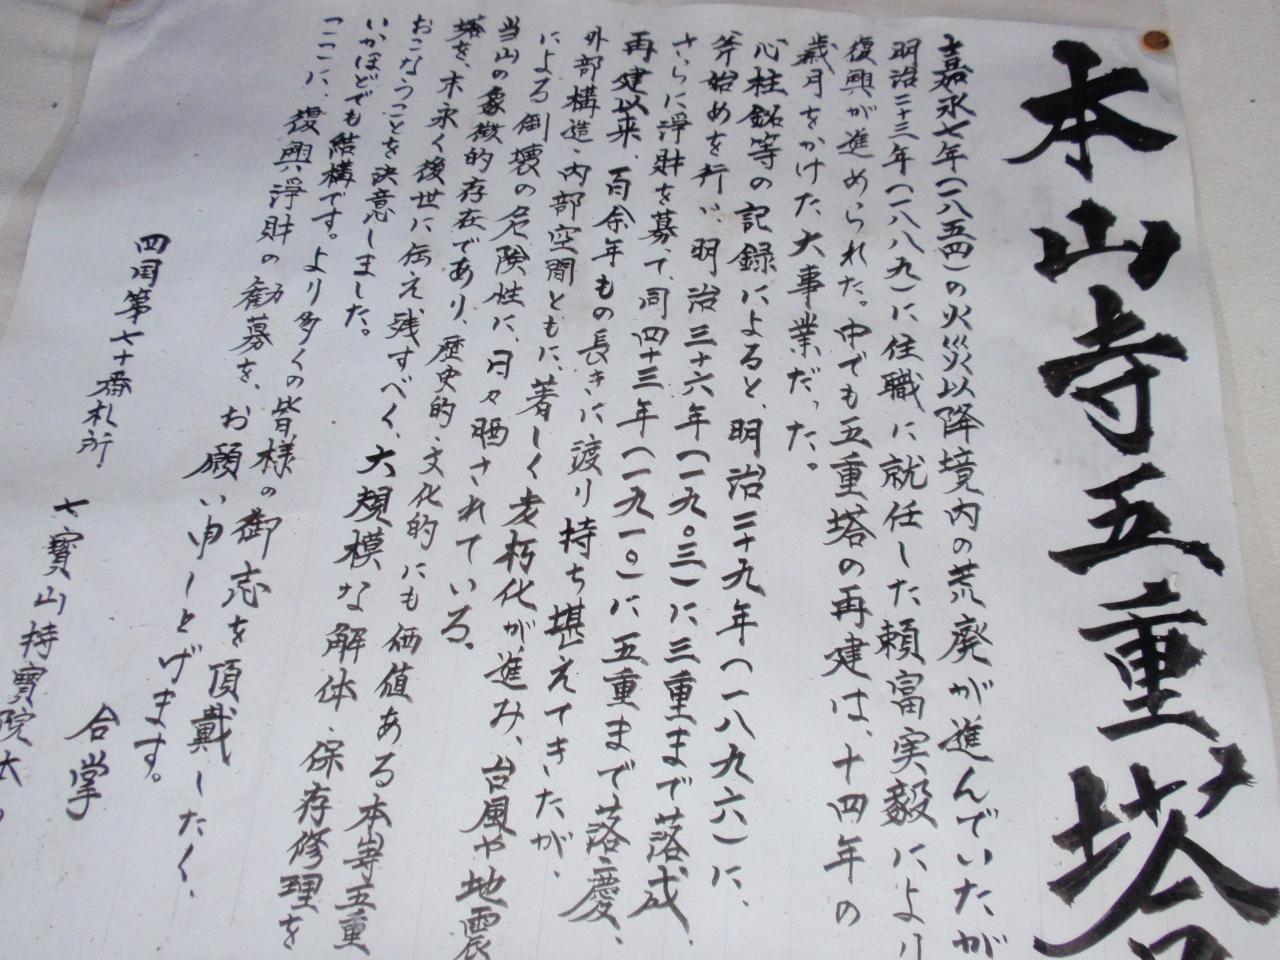 本山寺五重塔
嘉永七年(一八五四)の火災以降境内の荒廃が進んでいたが
明治二十三年(一八八九)に住職に就任した頼富実毅により
復興が進められた。中でも五重塔の再建は、十四年の
歳月をかけた大事業だった。
心柱銘等の記録によると、明治二十九年(一八九六)に、
斧始めを行い明治三十六年(一九〇三)に三重まで落成、
さらに浄財を募って同四十三年(一九一〇)に五重まで落慶、
再建以来、百余年もの長きに渡り持ち堪えてきたが、
外部構造内部空間ともに、著しく老朽化が進み、台風や地震
による倒壊の危険性に、日々晒されている。
当山の象徴的存在であり、歴史的・文化的にも価値ある本寺五重
塔を、末永く後世に伝え残すべく、大規模な解体・保存修理を
おこなうことを決意しました。
いかほどでも結構です。より多くの皆様の御志を頂戴したく、
ここに、復興浄財の勧募を、お願い申し上げます。
合掌
四国第七十番札所
七寶山持寶院本